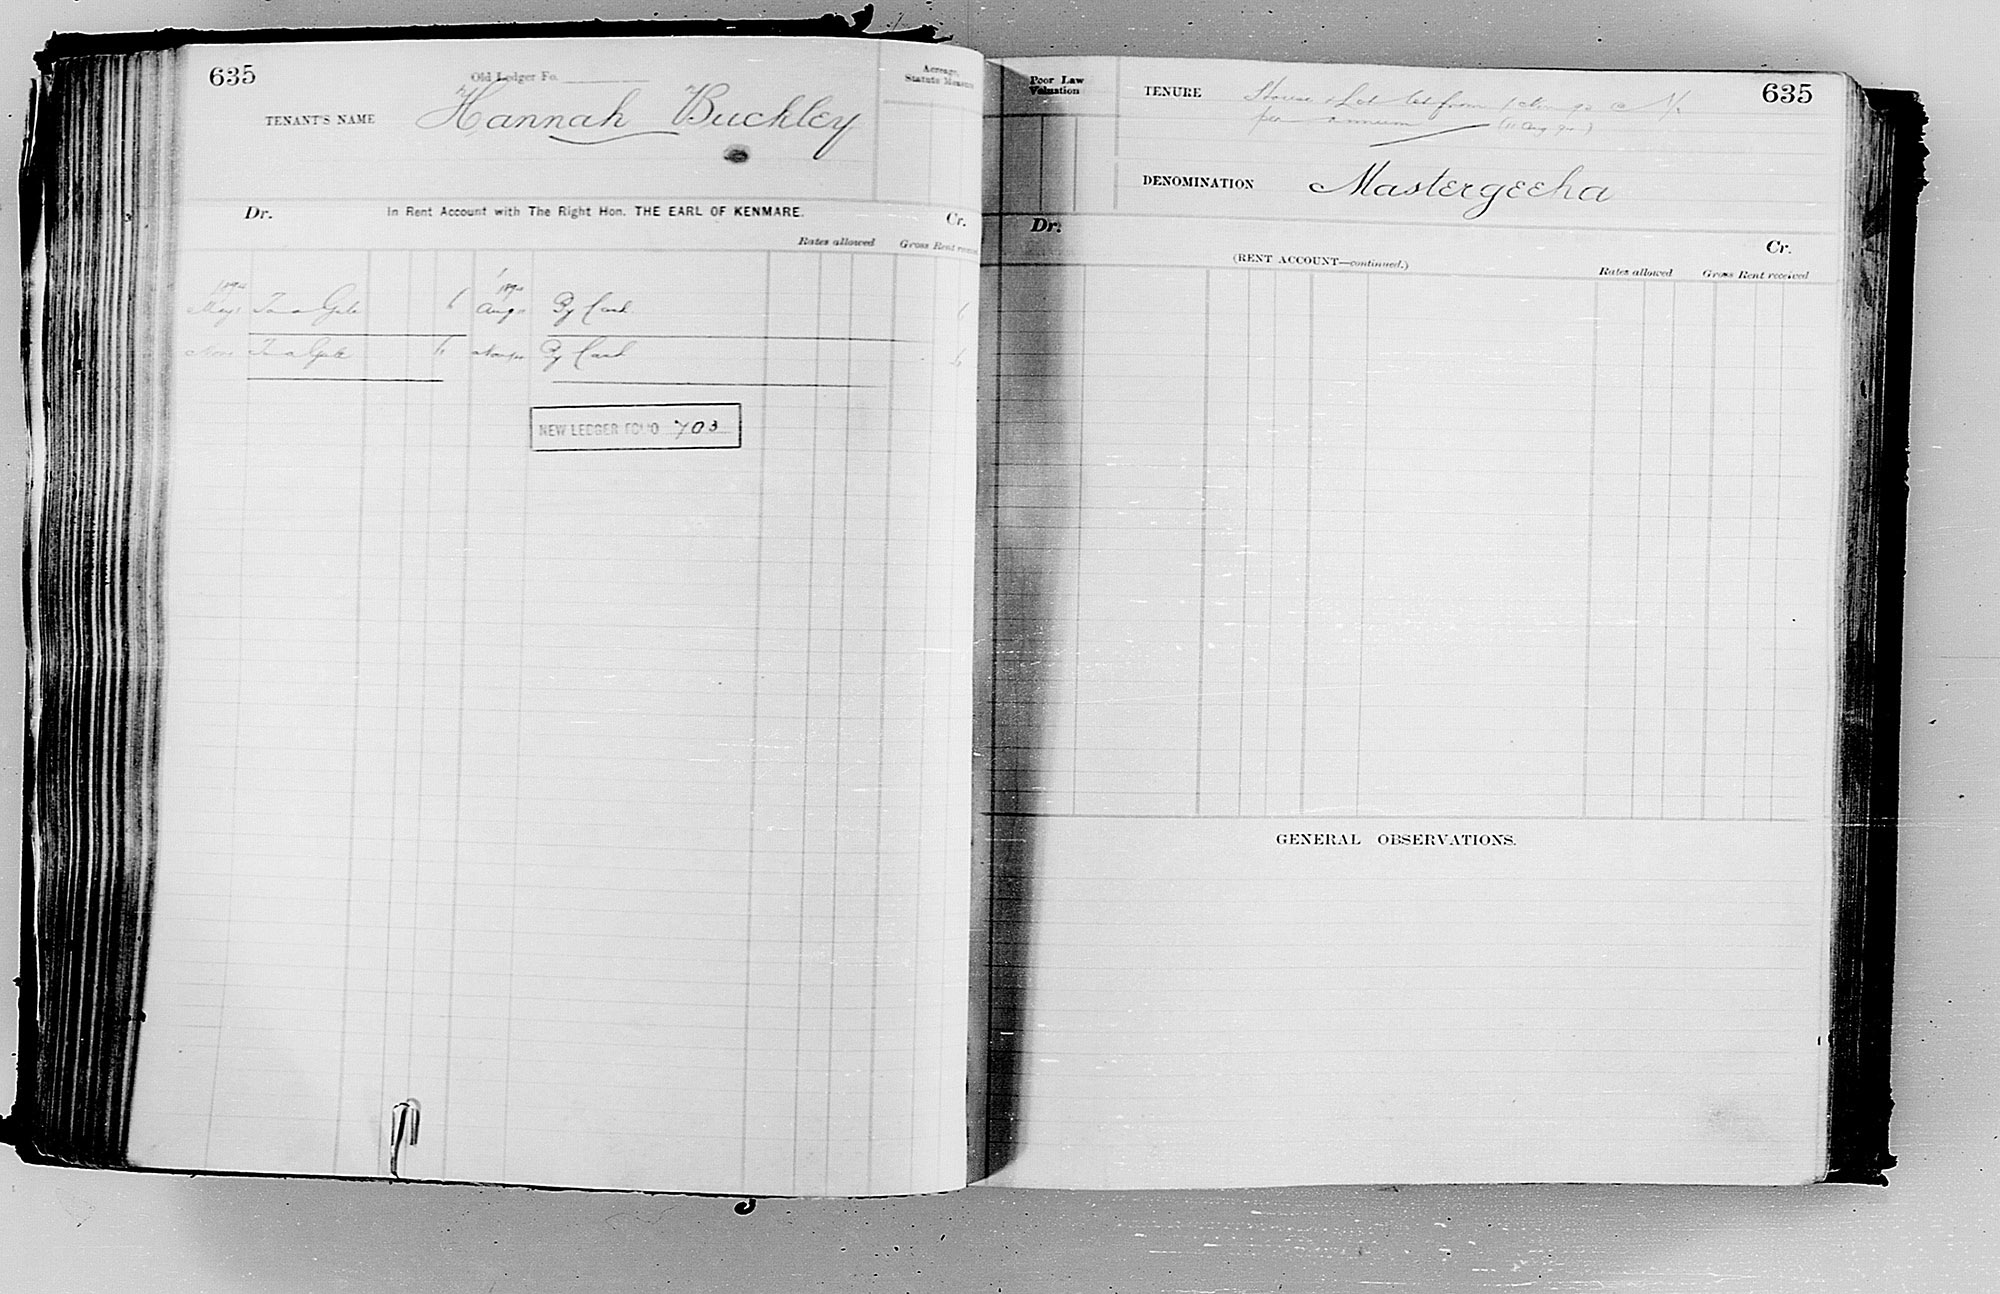 635
Old Ledger Fo.
Acreage, Statute Measure
TENANT'S NAME Hannah Buckley
Dr. In Rent Account with The Right Hon. THE EARL OF KENMARE. Cr.
Rates allowed Gross Rent received
May To a Gale 6 Aug By Cash 6
Nov To a Gale 6 By Cash 6
NEW LEDGER FOLIO 703
Poor Law Valuation
TENURE House & Lot let from
per annum
635
DENOMINATION Mastergeeha
Dr. Cr.
(RENT ACCOUNT—continued.)
Rates allowed Gross Rent received
GENERAL OBSERVATIONS.